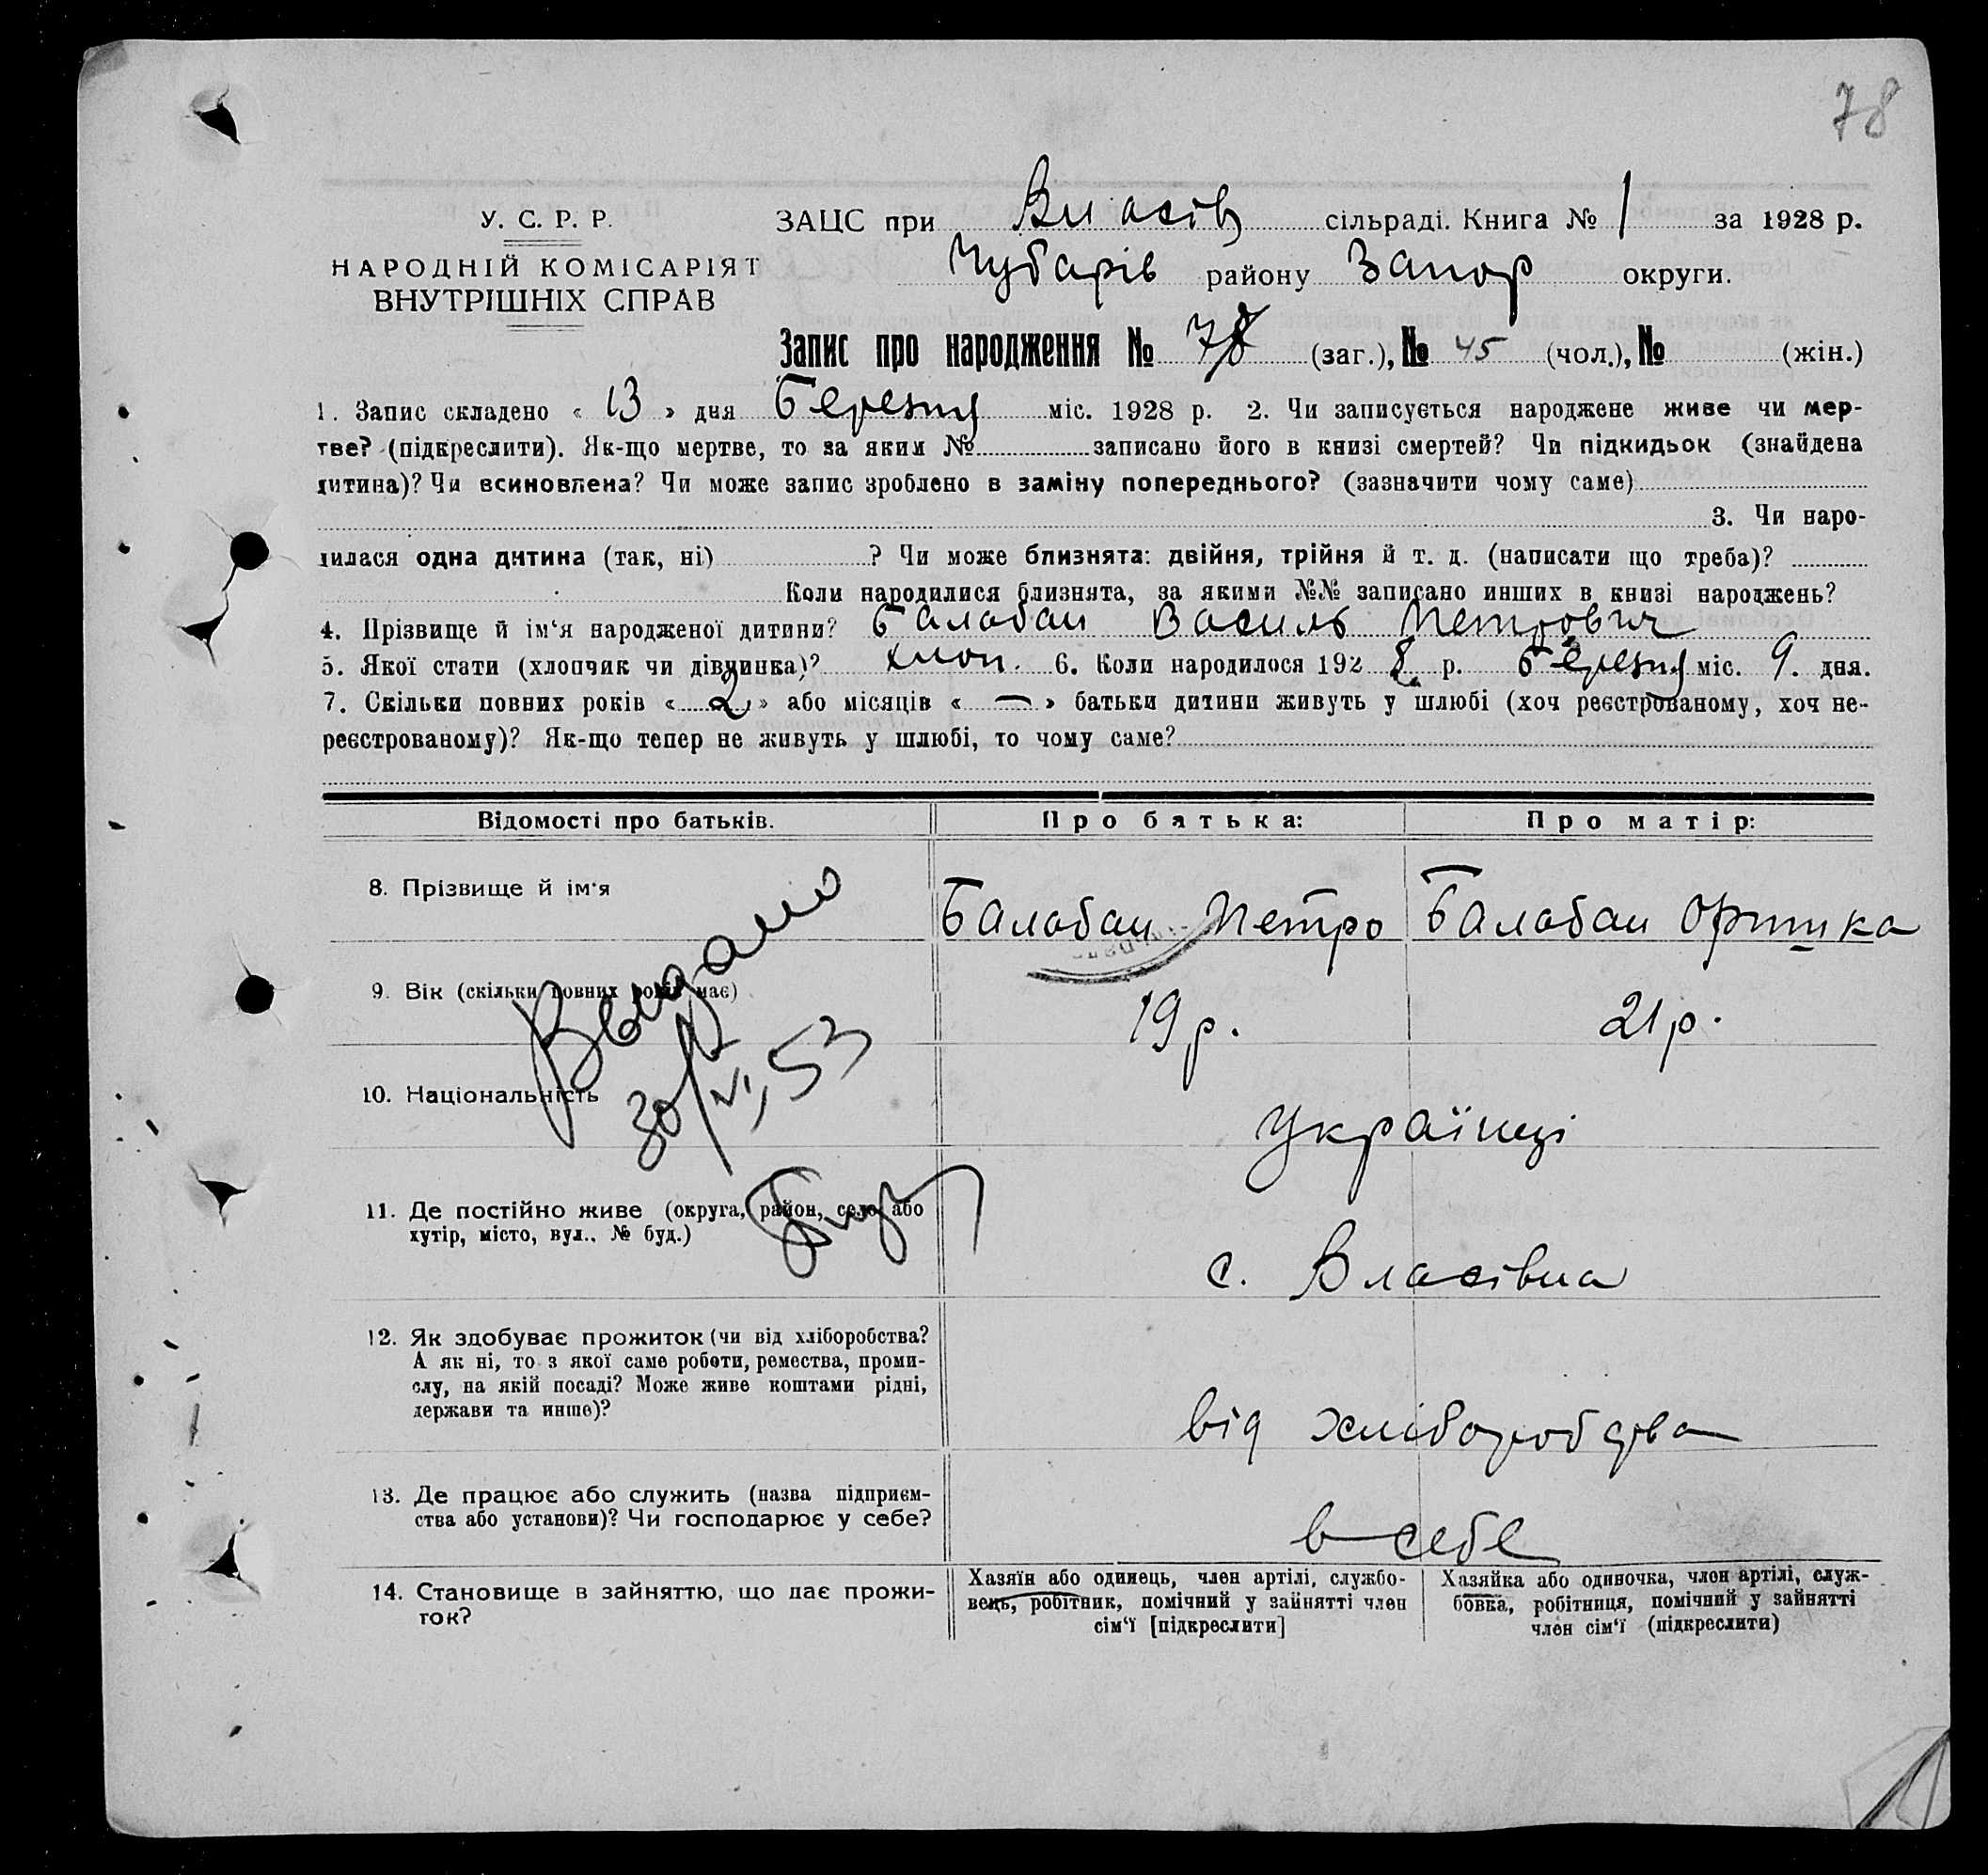 78
У. С. Р. Р.
НАРОДНІЙ КОМІСАРІЯТ
ВНУТРІШНІХ СПРАВ
ЗАЦС при Власів сільраді. Книга № 1 за 1928 р.
Чубарів району Запор округи.
Запис про народження № 78 (заг.), № 45 (чол.), № (жін.)
1. Запис складено « 13 » дня Березня міс. 1928 р. 2. Чи записується народжене живе чи мер-
тве? (підкреслити). Як-що мертве, то за яким № записано його в книзі смертей? Чи підкидьок (знайдена
дитина)? Чи всиновлена? Чи може запис зроблено в заміну попереднього? (зазначити чому саме)
3. Чи наро-
дилася одна дитина (так, ні) ? Чи може близнята: двійня, трійня й т. д. (написати що треба)?
Коли народилися близнята, за якими №№ записано инших в книзі народжень?
4. Прізвище й ім‘я народженої дитини? Балабан Василь Петрович
5. Якої стати (хлопчик чи дівчинка)? хлоп. 6. Коли народилося 1928 р. березня міс. 9. дня.
7. Скільки повних років « 2 » або місяців « — » батьки дитини живуть у шлюбі (хоч реєстрованому, хоч не-
реєстрованому)? Як-що тепер не живуть у шлюбі, то чому саме?
Відомості про батьків. Про батька: Про матір:
8. Прізвище й ім‘я Балабан Петро Балабан Оришка
9. Вік (скільки повних років має) 19 р. 21 р.
Выдано
30/VI, 53
10. Національність Українці
11. Де постійно живе (округа, район, село або
хутір, місто, вул., № буд.) с. Власівка
12. Як здобуває прожиток (чи від хліборобства?
А як ні, то з якої саме роботи, ремества, проми-
слу, на якій посаді? Може живе коштами рідні,
держави та инше)? від хліборобства
13. Де працює або служить (назва підприєм-
ства або установи)? Чи господарює у себе? в себе
14. Становище в зайняттю, що дає прожи-
ток?
Хазяїн або одинець, член артілі, службо-
вець, робітник, помічний у зайнятті член
сім‘ї [підкреслити]
Хазяйка або одиночка, член артілі, служ-
бовка, робітниця, помічний у зайнятті
член сім‘ї (підкреслити)